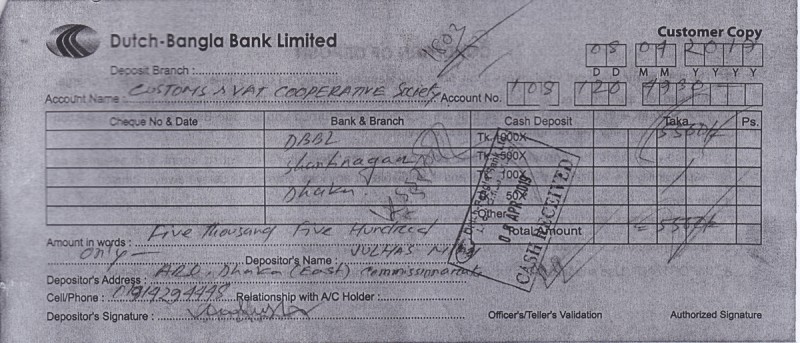 Dutch-Bangla Bank Limited
Customer Copy
08 04 2019
D D M M Y Y Y Y
Deposit Branch :
Account Name : CUSTOMS & VAT COOPERATIVE Society Account No. 108 120 4930
Cheque No & Date Bank & Branch Cash Deposit Taka Ps.
DBBL Tk. 1000X
Shantinagar Tk. 500X
Dhaka. Tk. 100X
50X
Other
Total Amount
08 APR 2019
CASH RECEIVED
Amount in words : Five Thousand Five Hundred
only — Depositor's Name : JULHAS
Depositor's Address : ARO. Dhaka (East) Commissionarate
Cell/Phone : 01914294498 Relationship with A/C Holder :
Depositor's Signature :
Officer's/Teller's Validation Authorized Signature